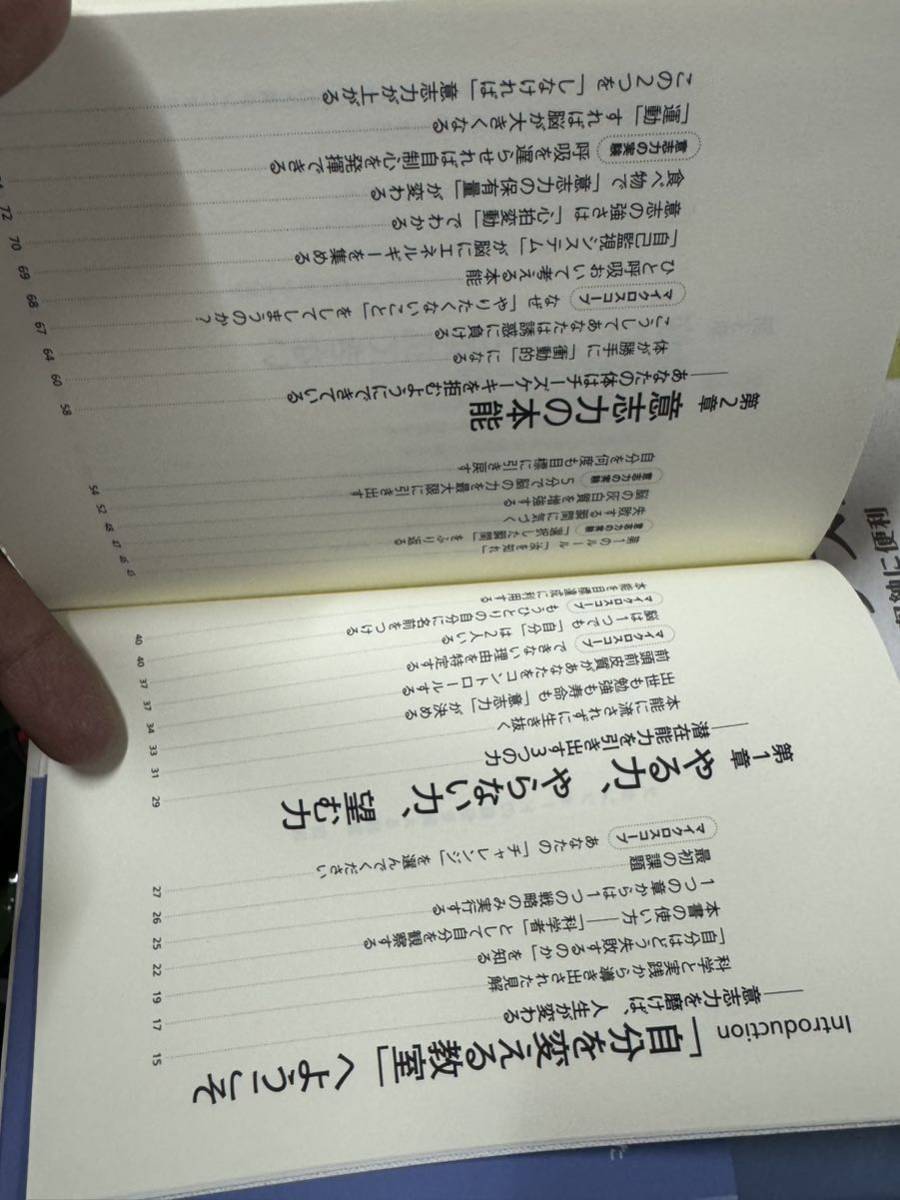 Introduction 「自分を変える教室」へようこそ
――意志力を磨けば、人生が変わる 15
科学と実践から導き出された見解 17
「自分はどう失敗するのか」を知る 19
本書の使い方――「科学者」として自分を観察する 22
1つの章からは1つの戦略のみ実行する 25
最初の課題 26
マイクロスコープ あなたの「チャレンジ」を選んでください 27
第1章 やる力、やらない力、望む力
――潜在能力を引き出す3つの力 29
本能に流されずに生き抜く 31
出世も勉強も寿命も「意志力」が決める 33
前頭前皮質があなたをコントロールする 34
マイクロスコープ できない理由を特定する 37
脳は1つでも「自分」は2人いる 37
マイクロスコープ もうひとりの自分に名前をつける 40
本能を目標達成に利用する 40
第1のルール「汝を知れ」 43
意志力の実験 「選択した瞬間」をふり返る 45
失敗する瞬間に気づく 47
脳の灰白質を増強する 48
意志力の実験 5分で脳の力を最大限に引き出す 52
自分を何度も目標に引き戻す 54
第2章 意志力の本能
――あなたの体はチーズケーキを拒むようにできている 58
体が勝手に「衝動的」になる 60
こうしてあなたは誘惑に負ける 64
マイクロスコープ なぜ「やりたくないこと」をしてしまうのか? 67
ひと呼吸おいて考える本能 68
「自己監視システム」が脳にエネルギーを集める 69
意志の強さは「心拍変動」でわかる 70
食べ物で「意志力の保有量」が変わる 72
意志力の実験 呼吸を遅らせれば自制心を発揮できる
「運動」すれば脳が大きくなる
この2つを「しなければ」意志力が上がる